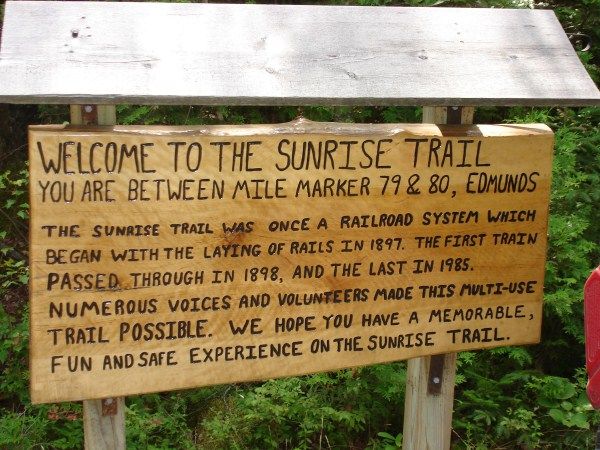 WELCOME TO THE SUNRISE TRAIL
YOU ARE BETWEEN MILE MARKER 79 & 80, EDMUNDS
THE SUNRISE TRAIL WAS ONCE A RAILROAD SYSTEM WHICH
BEGAN WITH THE LAYING OF RAILS IN 1897. THE FIRST TRAIN
PASSED THROUGH IN 1898, AND THE LAST IN 1985.
NUMEROUS VOICES AND VOLUNTEERS MADE THIS MULTI-USE
TRAIL POSSIBLE. WE HOPE YOU HAVE A MEMORABLE,
FUN AND SAFE EXPERIENCE ON THE SUNRISE TRAIL.